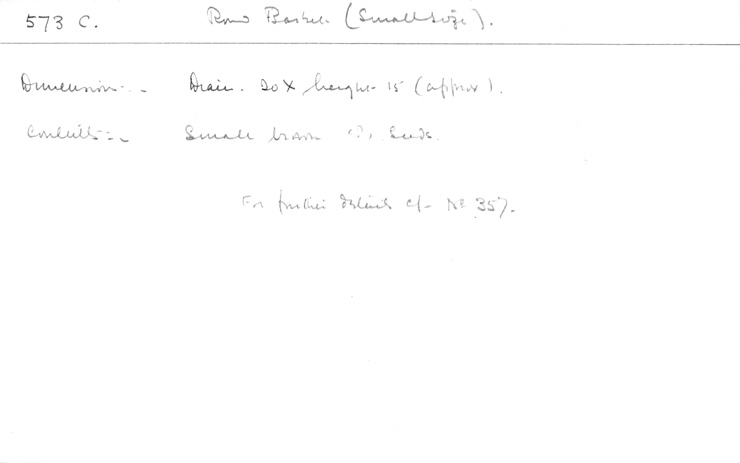 573 C. Round Basket (Small size).
Dimension:- Diam. 20 X height 15 (approx).
Contents:- Small brown (?) seeds.
For further details cf- No 357.